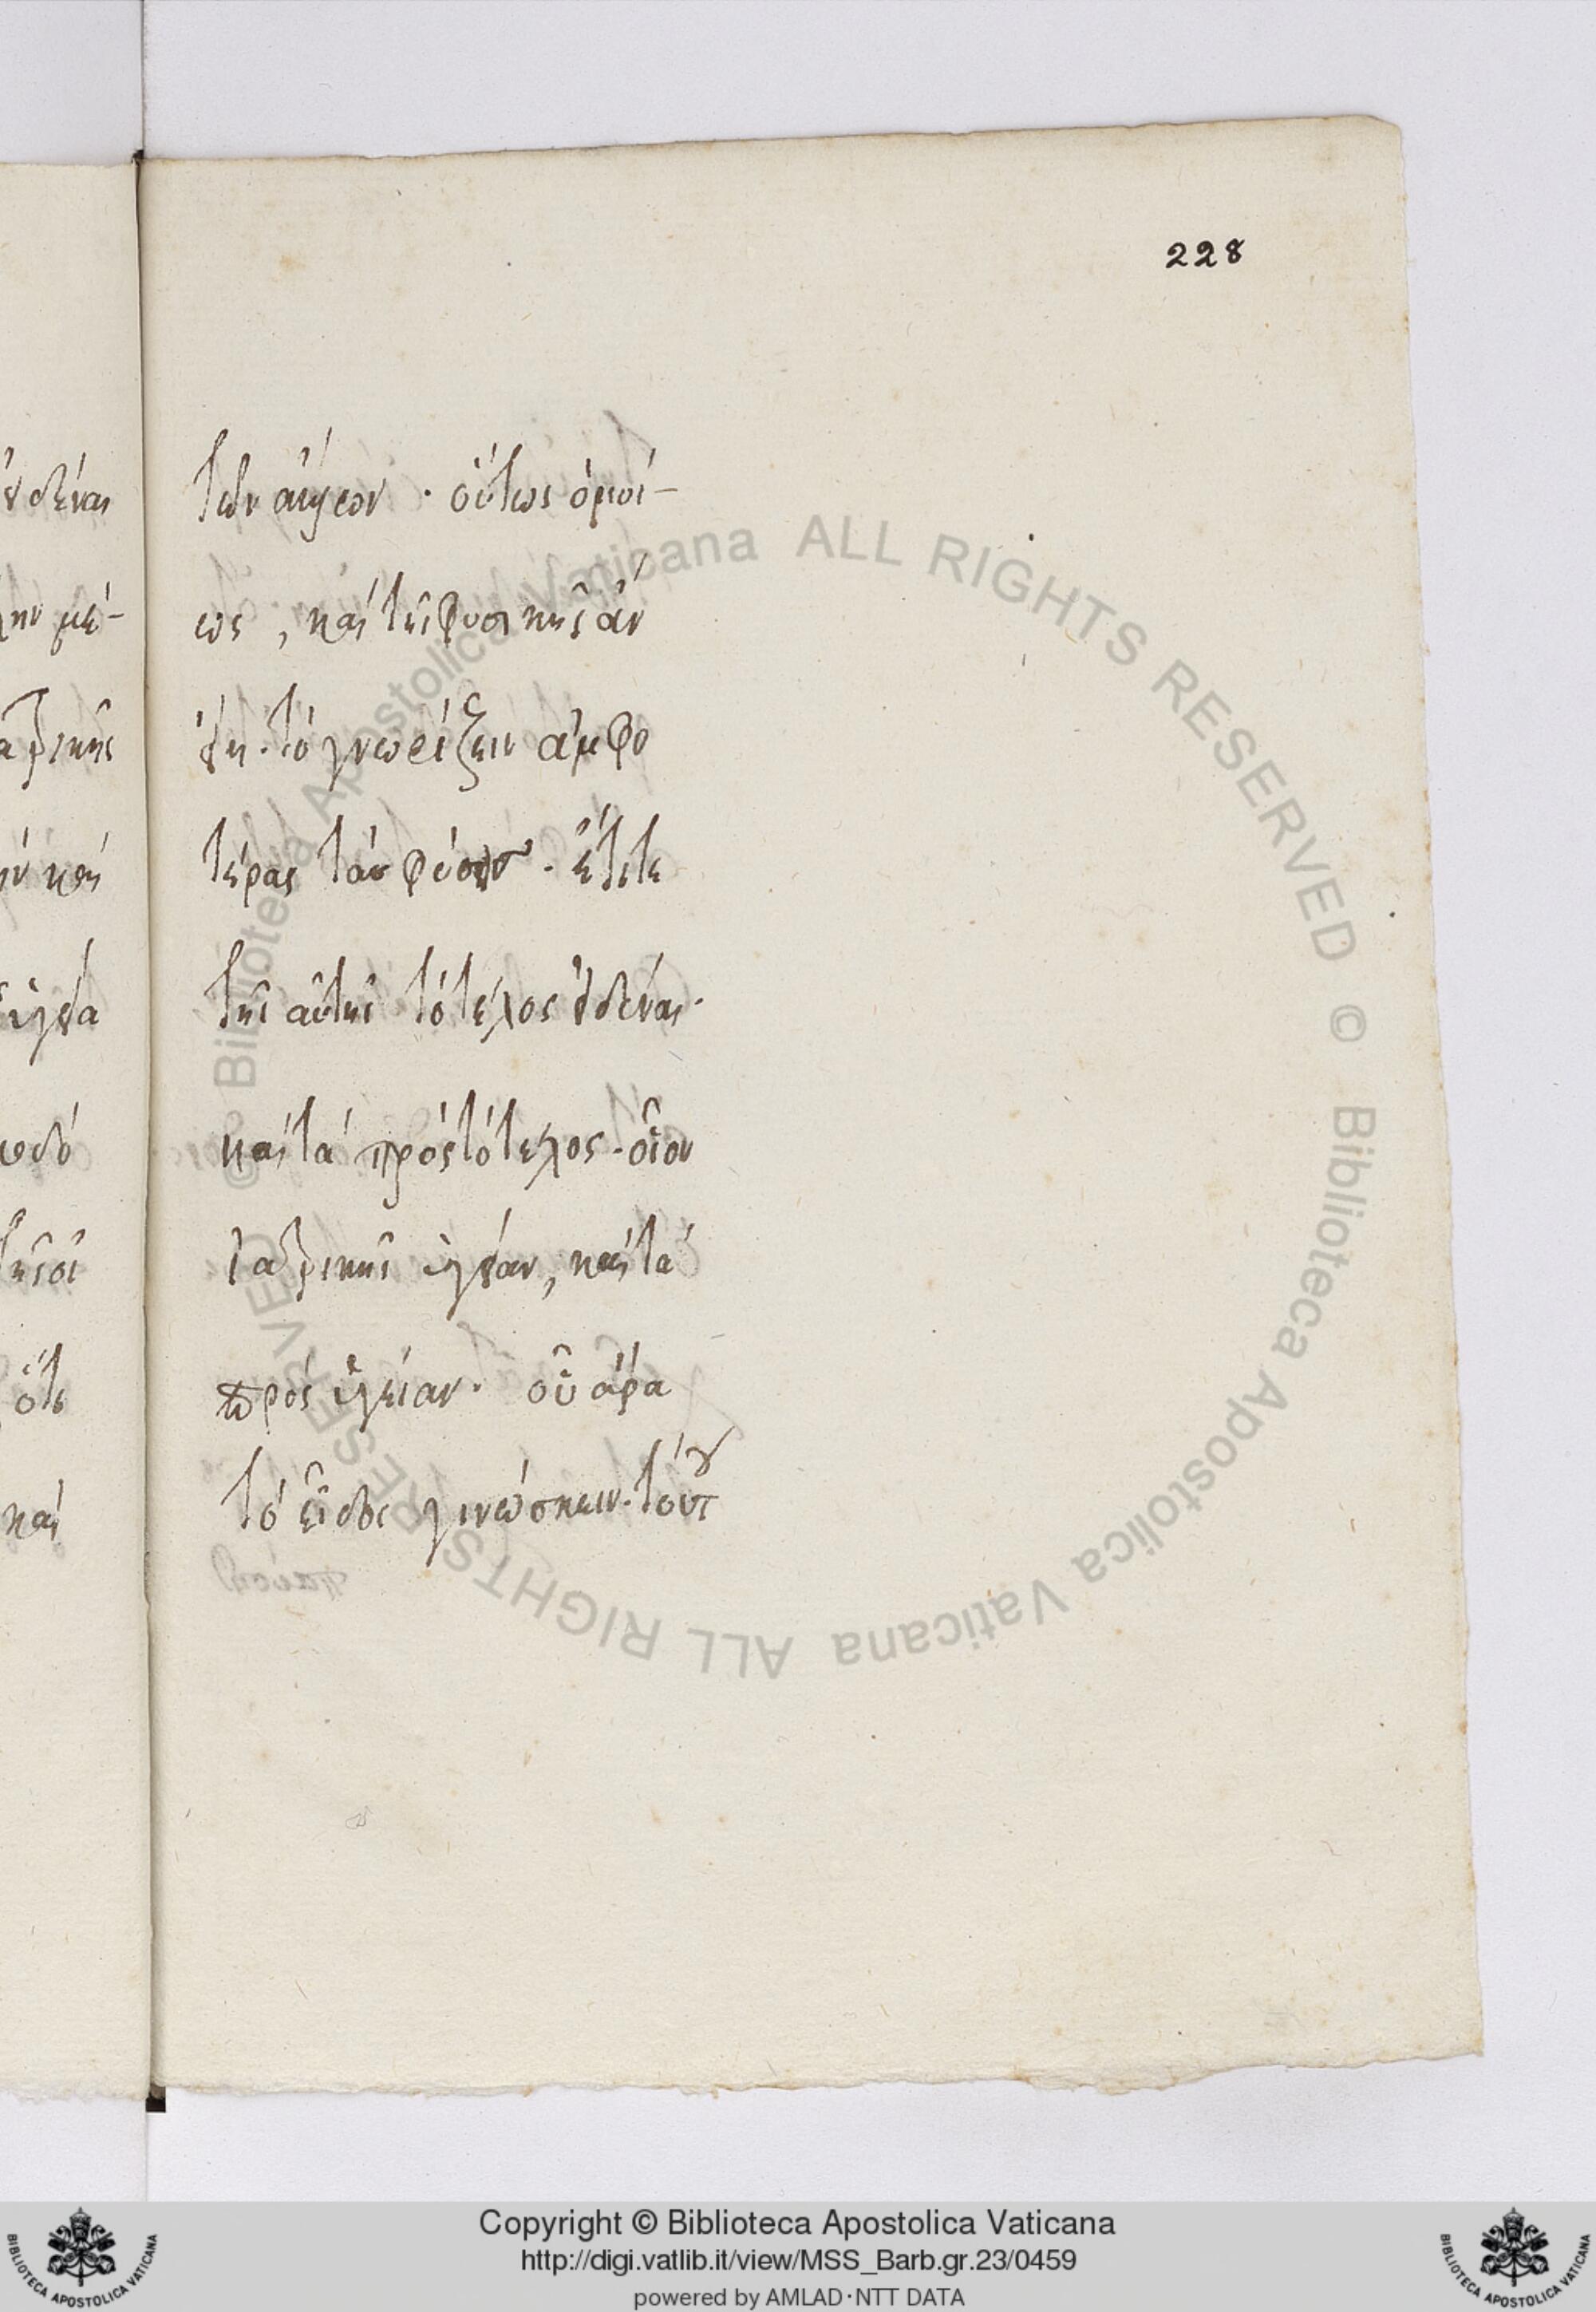 228
οὐδέναι
μέ-
ἰατρικῆς
καὶ
ὑγεία
ὅτι
καὶ
τῶν
οὕτως ὁμοί-
ως, καὶ τῆς φυσικῆς ἂν
εἴη. τὸ γνωρίζειν ἀμφο
τέρας τὰσ φύσεισ. ἔτι τε
τῆς αὐτῆς τὸ τέλος
καὶ τὰ πρὸς τὸ τέλος. οἷον
ἰατρικῆς ὑγείαν, καὶ τὰ
πρὸς ὑγείαν. οὗ ἄρα
τὸ εἶδος γινώσκειν. τούτου
© Biblioteca Apostolica Vaticana ALL RIGHTS RESERVED © Biblioteca Apostolica Vaticana ALL RIGHTS RESERVED
Copyright © Biblioteca Apostolica Vaticana
http://digi.vatlib.it/view/MSS_Barb.gr.23/0459
powered by AMLAD·NTT DATA
BIBLIOTECA APOSTOLICA VATICANA
BIBLIOTECA APOSTOLICA VATICANA